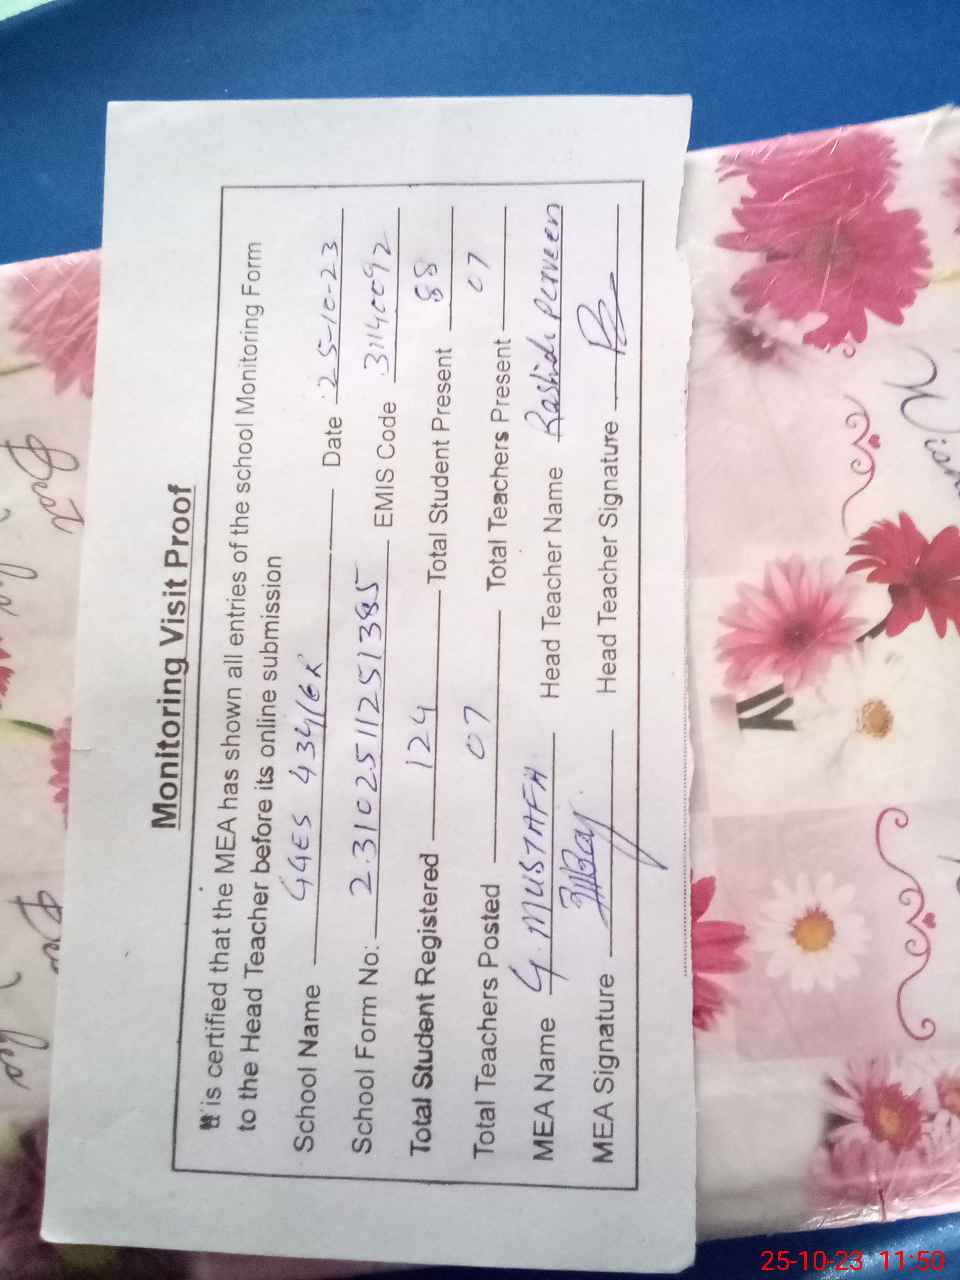 Monitoring Visit Proof
It is certified that the MEA has shown all entries of the school Monitoring Form
to the Head Teacher before its online submission
School Name GGES 434/6R Date 25-10-23
School Form No: 23102511251385 EMIS Code 31140092
Total Student Registered 124 Total Student Present 88
Total Teachers Posted 07 Total Teachers Present 07
MEA Name G. MUSTAFA Head Teacher Name Rashida Perveen
MEA Signature Head Teacher Signature
25-10-23 11:50